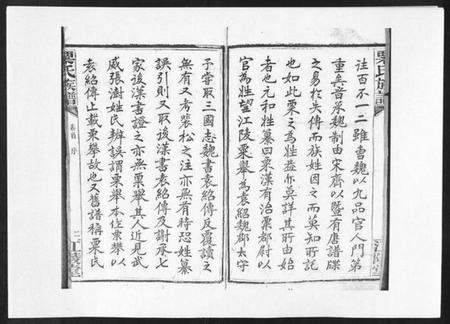 往百不一二雖曹魏以九品官人門第
重矣晉承魏制由宋齊以暨有唐譜牒
之易於失傳而族姓因之而莫知所託
也如此栗之為姓益亦莫詳其所由始
者也元和姓纂曰栗漢有治栗都尉以
官為姓望江陵栗舉為袁紹魏郡太守
子嘗取三國志魏書袁紹傳反覆讀之
無有又考裴松之注亦無有時恐姓纂
誤引則又取後漢書袁紹傳及謝承七
家後漢書證之亦無栗舉其人近見武
威張澍姓氏辨誤謂栗舉本作栗攀以
袁紹傳止載栗攀故也又舊譜稱栗氏
栗氏族譜
卷首 序